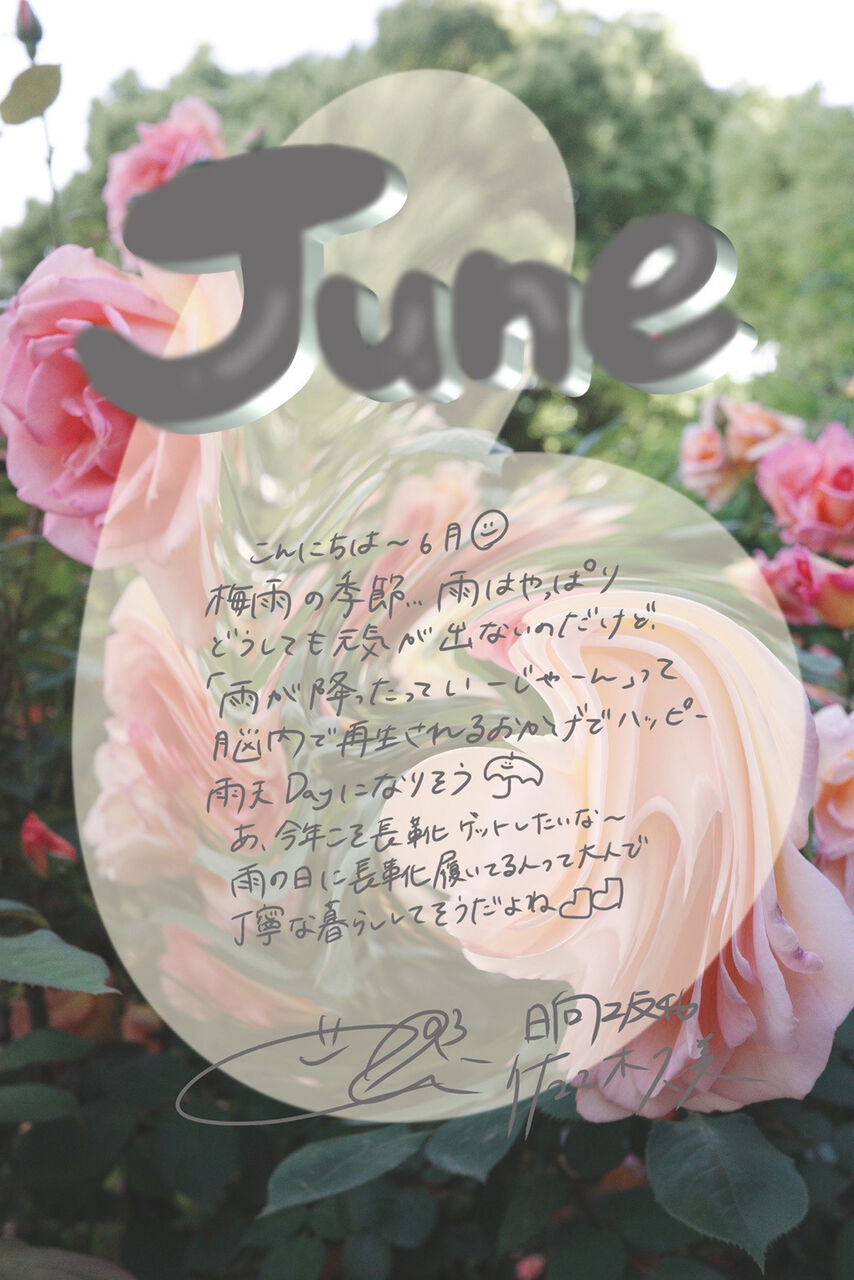 June
こんにちは〜6月
梅雨の季節... 雨はやっぱり
どうしても元気が出ないのだけど、
「雨が降ったっていーじゃーん」って
脳内で再生されるおかげでハッピー
雨天Dayになりそう
あ、今年こそ長靴ゲットしたいな〜
雨の日に長靴履いてる人って大人で
丁寧な暮らししてそうだよね
日向坂46
佐々木久美